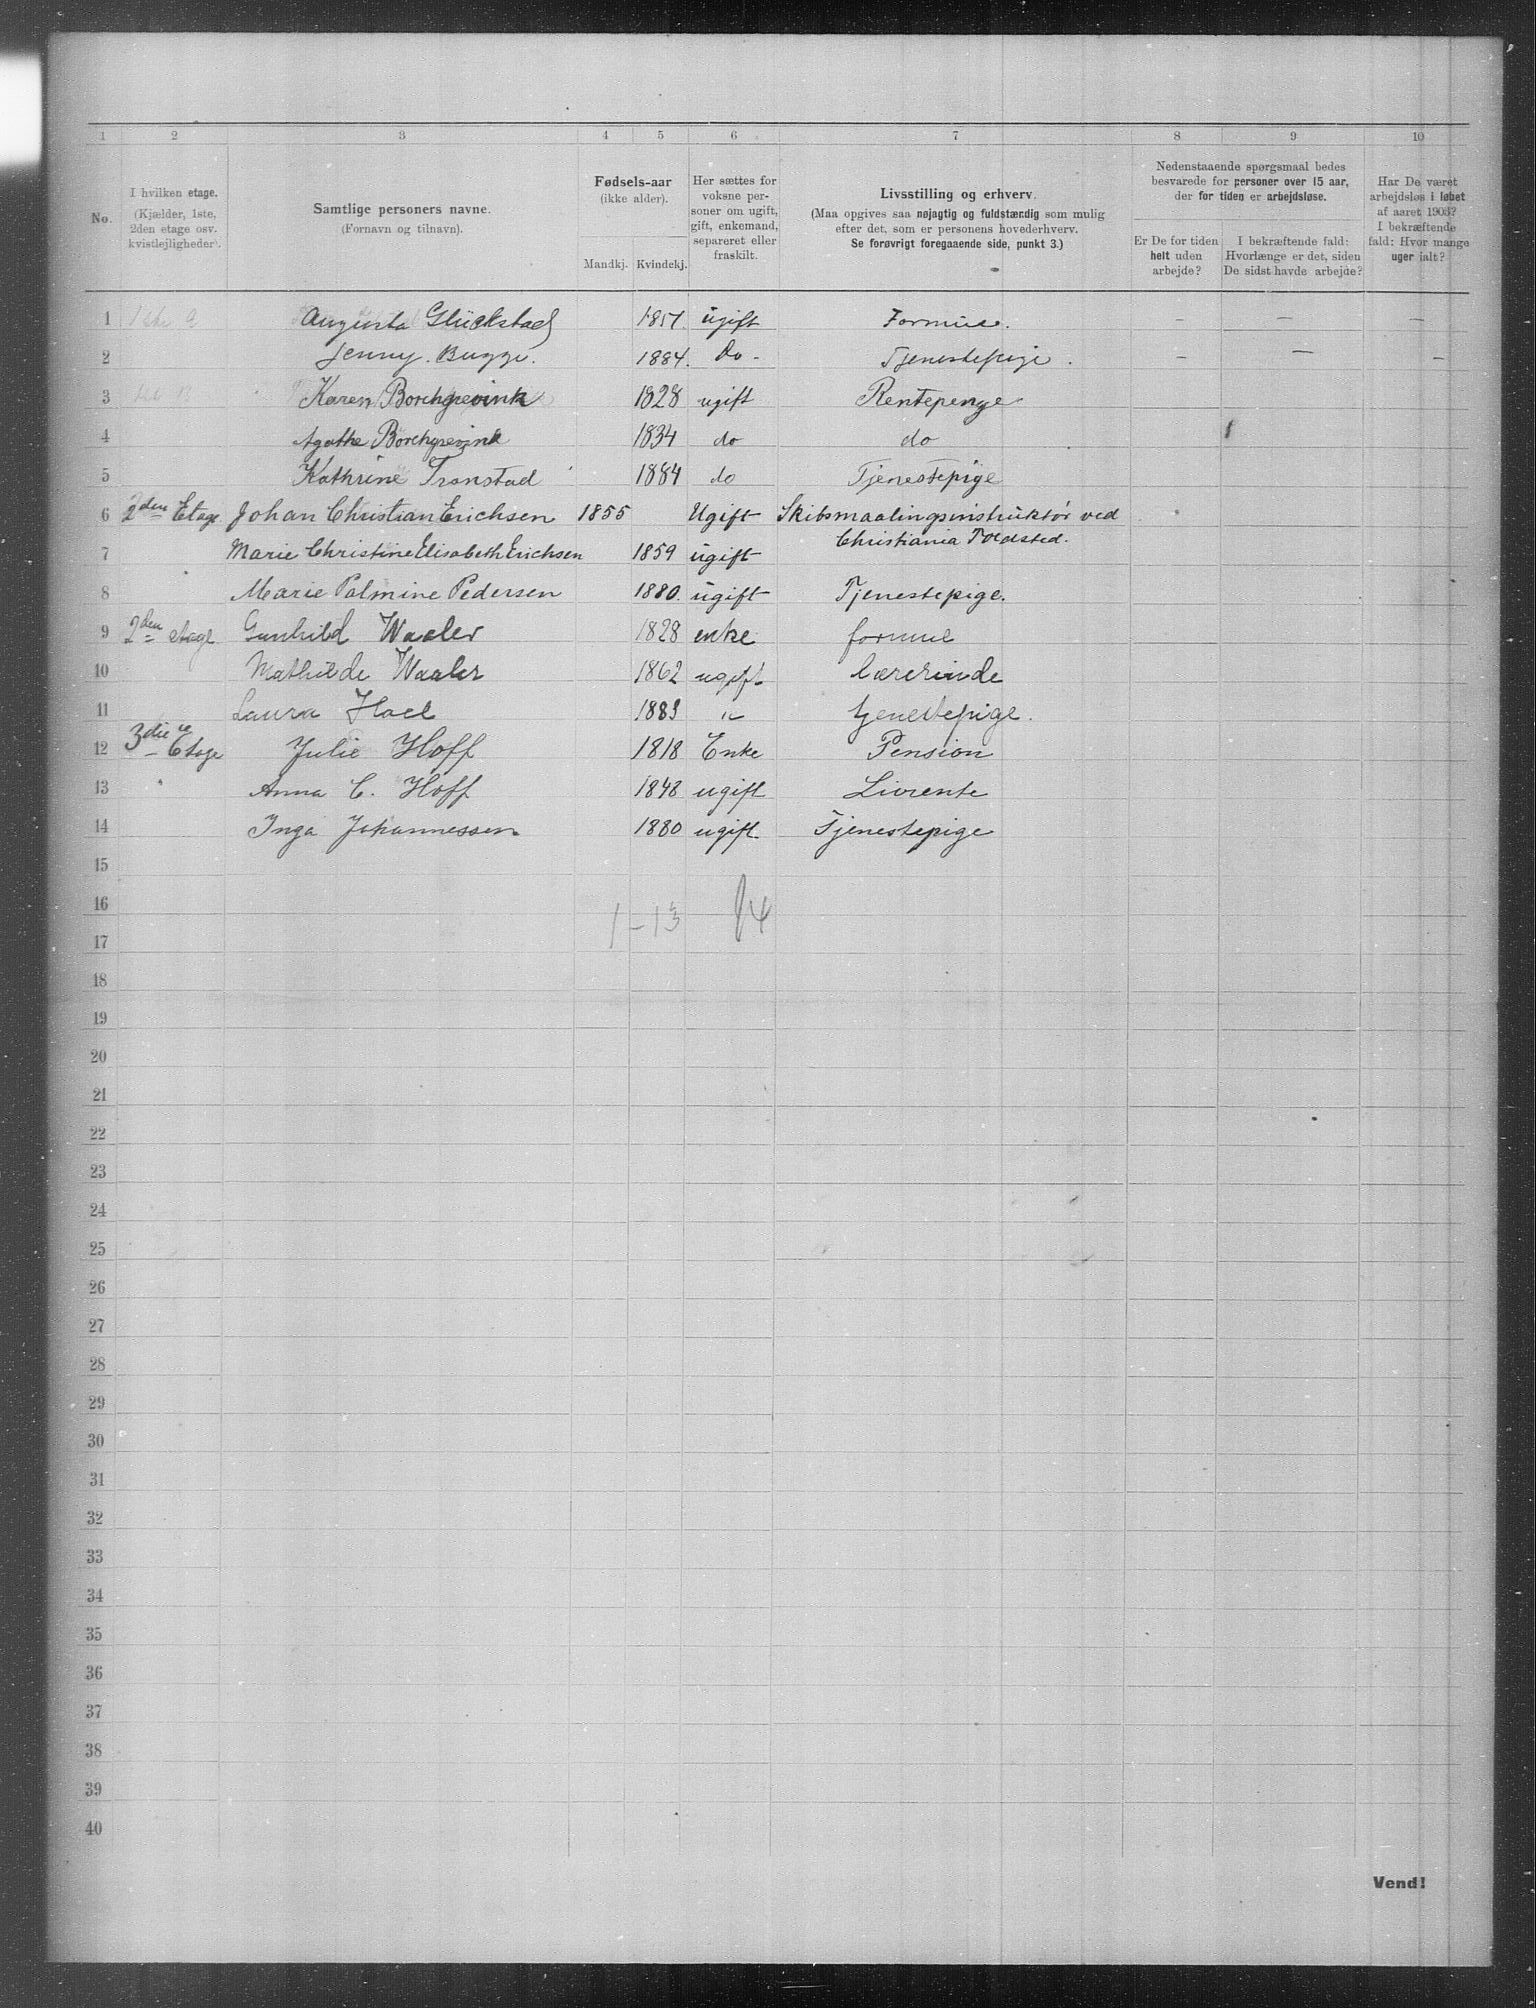 1 2 3 4 5 6 7 8 9 10
No.
I hvilken etage.
(Kjælder, 1ste,
2den etage osv.
kvistlejligheder).
Samtlige personers navne.
(Fornavn og tilnavn).
Fødsels-aar
(ikke alder).
Mandkj. Kvindekj.
Her sættes for
voksne per-
soner om ugift,
gift, enkemand,
separeret eller
fraskilt.
Livsstilling og erhverv.
(Maa opgives saa nøjagtig og fuldstændig som mulig
efter det, som er personens hovederhverv.
Se forøvrigt foregaaende side, punkt 3.)
Nedenstaaende spørgsmaal bedes
besvarede for personer over 15 aar,
der for tiden er arbejdsløse.
Er De for tiden
helt uden
arbejde?
I bekræftende fald:
Hvorlænge er det, siden
De sidst havde arbejde?
Har De været
arbejdsløs i løbet
af aaret 1903?
I bekræftende
fald: Hvor mange
uger ialt?
1 Augusta Glückstad 1857. ugift Formue. – – –
2 Jenny. Bugge. 1884. do. Tjenestepige. – – –
3 Karen Borchgrevink 1828 ugift Rentepenge
4 Agathe Borchgrevink 1834 do do
5 Kathrine Tronstad 1884 do Tjenestepige
6 2den Etage Johan Christian Erichsen 1855 Ugift Skibsmaalingsinstruktør ved
Christiania Toldsted.
7 Marie Christine Elisabeth Erichsen 1859 ugift
8 Marie Palmine Pedersen 1880. ugift Tjenestepige.
9 2den etage Gunhild Waaler 1828 enke formue
10 Mathilde Waaler 1862 ugift lærerinde
11 Laura Hoel 1883 " tjenestepige.
12 3die Etage Julie Hoff 1818 Enke Pension
13 " Anna C. Hoff 1848 ugift Livrente
14 Inga Johannessen 1880 ugift Tjenestepige
15
16
1–13 14
17
18
19
20
21
22
23
24
25
26
27
28
29
30
31
32
33
34
35
36
37
38
39
40
Vend!